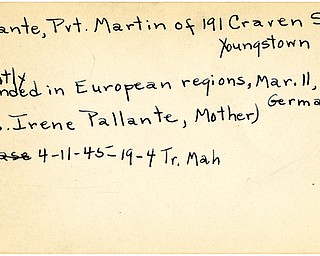 ante, Pvt. Martin of 191 Craven S
Youngstown
tly
nded in European regions, Mar. 11,
Germa
. Irene Pallante, Mother)
ase 4-11-45-19-4 Tr. Mah